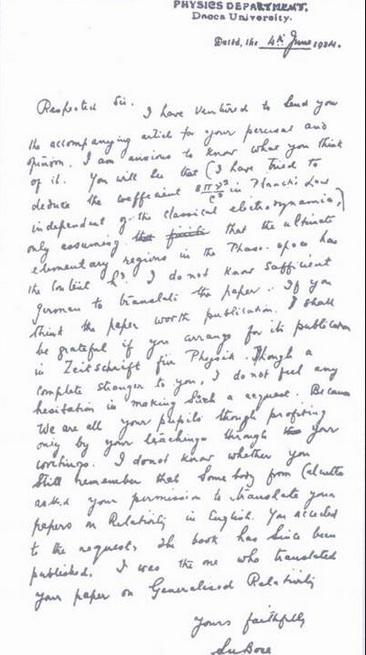 PHYSICS DEPARTMENT,
Dacca University.
Dated, the 4th June 1924.
Respected Sir, I have ventured to send you
the accompanying article for your perusal and
opinion. I am anxious to know what you think
of it. You will see that I have tried to
deduce the coefficient 8πν²/c³ in Planck's Law
independent of the classical electrodynamics,
only assuming that the ultimate
elementary regions in the Phase-space has
the content h³. I do not know sufficient
German to translate the paper. If you
think the paper worth publication, I shall
be grateful if you arrange for its publication
in Zeitschrift für Physik. Though a
complete stranger to you, I do not feel any
hesitation in making such a request. Because
we are all your pupils though profiting
only by your teachings through your
writings. I do not know whether you
still remember that somebody from Calcutta
asked your permission to translate your
papers on Relativity in English. You acceded
to the request. The book has since been
published. I was the one who translated
your paper on Generalised Relativity
Yours faithfully
SnBose